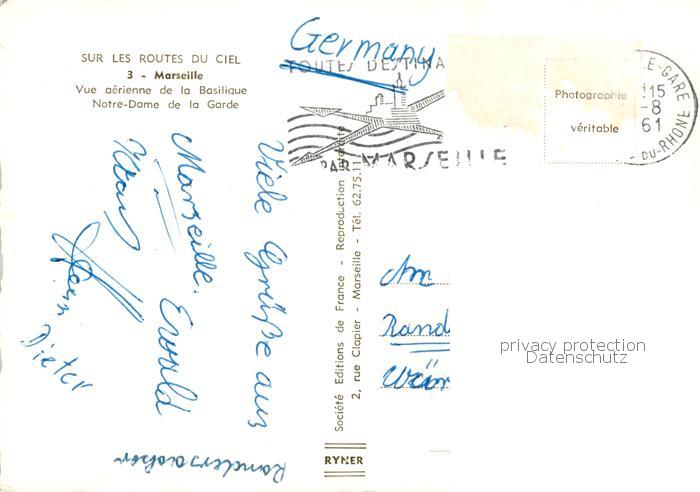 SUR LES ROUTES DU CIEL
3 - Marseille
Vue aérienne de la Basilique
Notre-Dame de la Garde
Germany
TOUTES DESTINA
PAR MARSEILLE
E-GARE
15
-8
61
DU-RHONE
Photographie
véritable
Viele Grüße aus
Marseille. Ewald
Hans
Dieter
Randersacker
Société Editions de France - Reproduction interdite
2, rue Clapier - Marseille - Tél. 62.75.11
RYNER
Am
Rand
privacy protection
Datenschutz